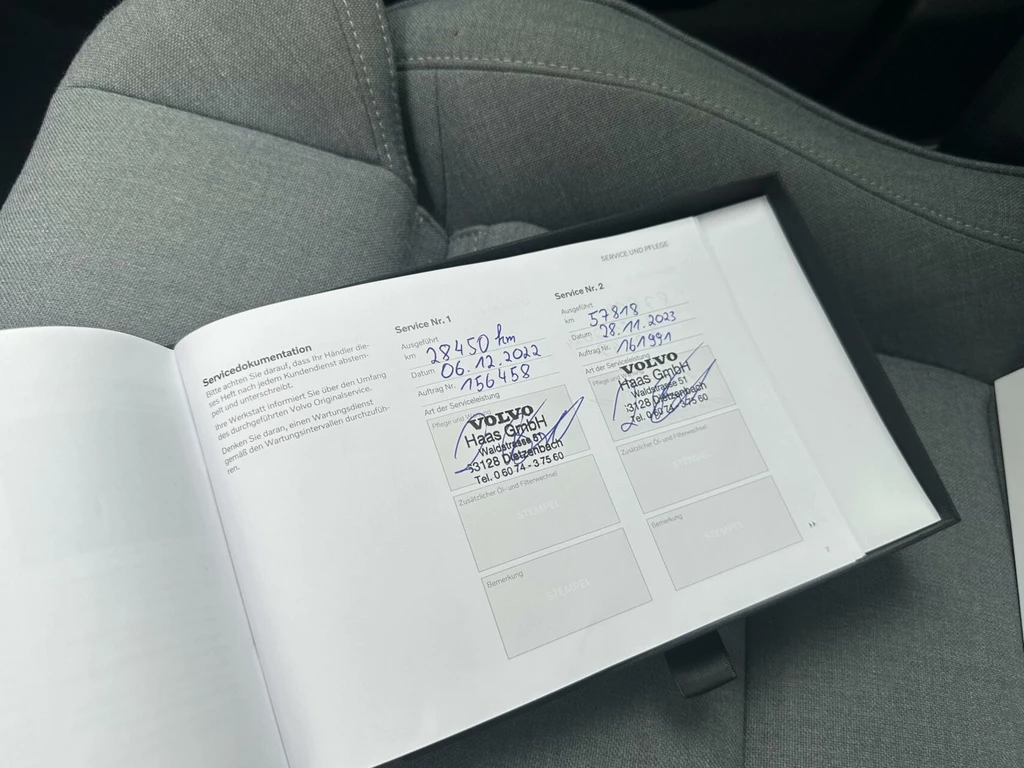 SERVICE UND PFLEGE
Servicedokumentation
Bitte achten Sie darauf, dass Ihr Händler die-
ses Heft nach jedem Kundendienst abstem-
pelt und unterschreibt.
Ihre Werkstatt informiert Sie über den Umfang
des durchgeführten Volvo Originalservice.
Denken Sie daran, einen Wartungsdienst
gemäß den Wartungsintervallen durchzufüh-
ren.
Service Nr. 1
Ausgeführt
km 28450 km
Datum 06.12.2022
Auftrag Nr. 156458
Art der Serviceleistung
Pflege und
VOLVO
Haas GmbH
Waldstrasse 51
63128 Dietzenbach
Tel. 0 60 74 - 3 75 60
Zusätzlicher Öl- und Filterwechsel
STEMPEL
Bemerkung
STEMPEL
Service Nr. 2
Ausgeführt
km 57818
Datum 28.11.2023
Auftrag Nr. 161991
Art der Serviceleistung
Pflege und
VOLVO
Haas GmbH
Waldstrasse 51
63128 Dietzenbach
Tel. 0 60 74 - 3 75 60
Zusätzlicher Öl- und Filterwechsel
STEMPEL
Bemerkung
STEMPEL